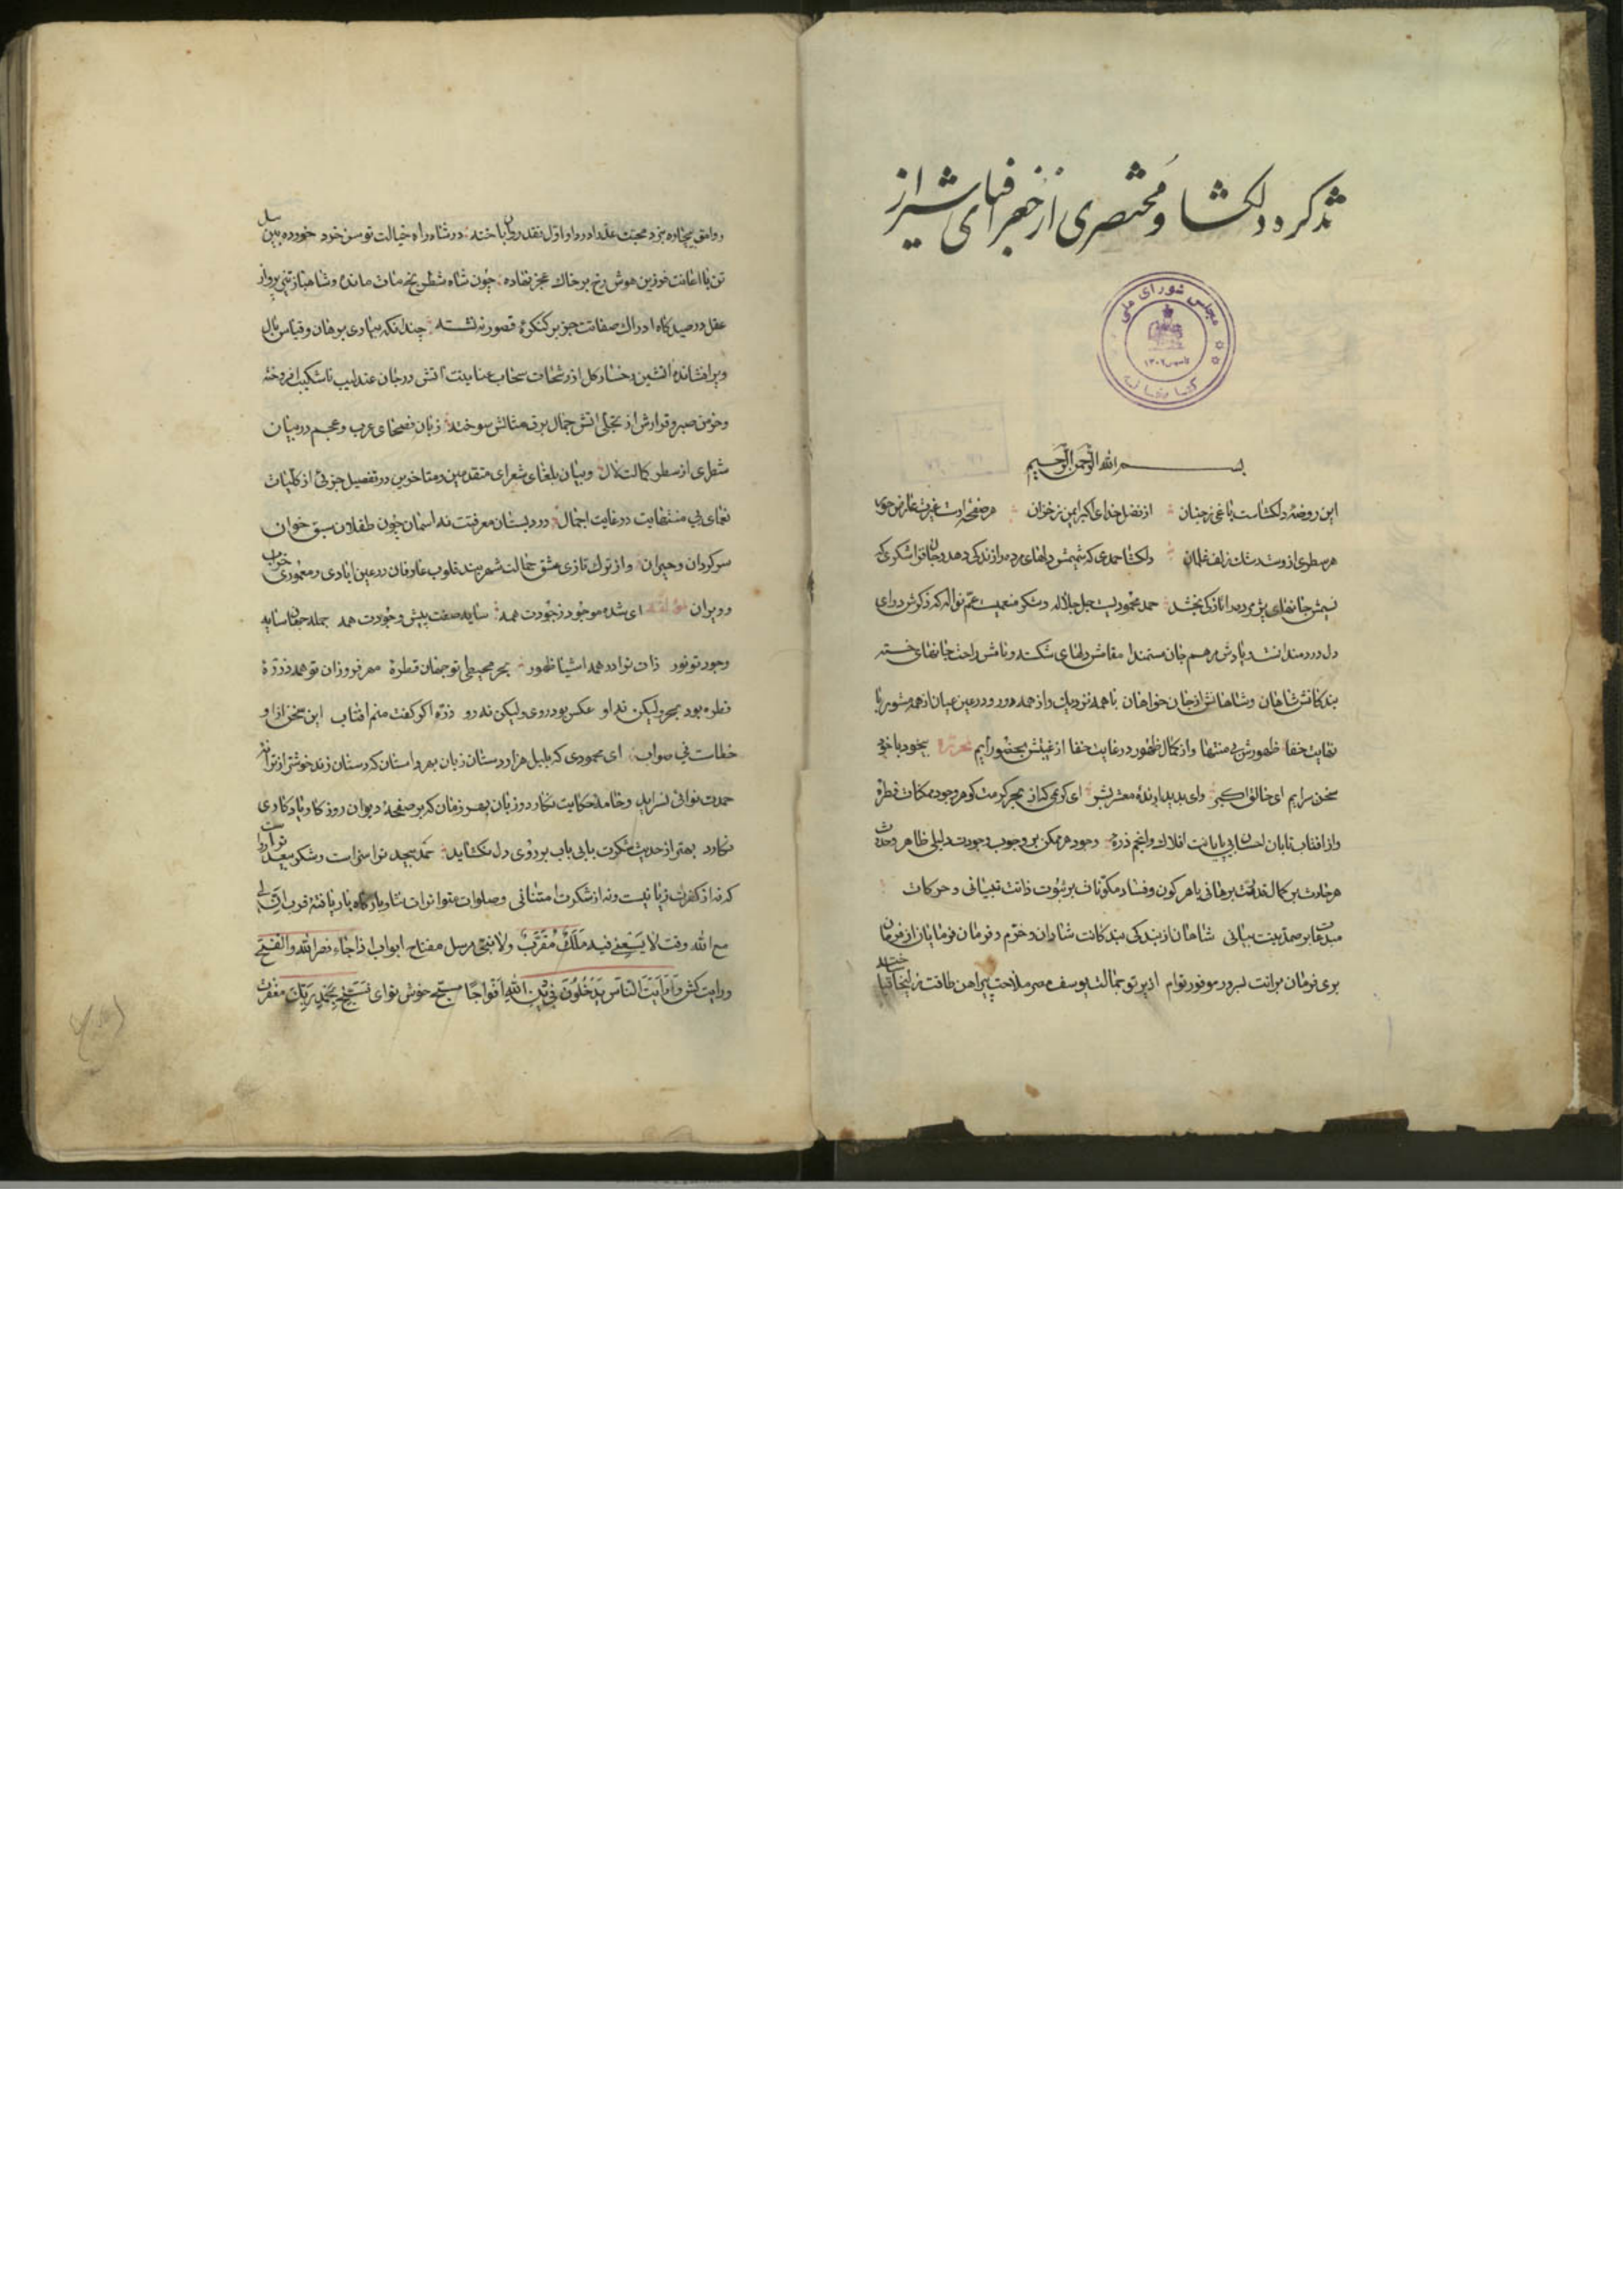 تذکره دلگشا و مختصری از جغرافیای شیراز
مجلس شورای ملی
کتابخانه
بسم الله الرحمن الرحیم
این روضهٔ دلکشاست باغی ز جنان از فضل خدای اکبر ایمن ز خزان هر صفحه است غیرت عارض حور
هر سطری از و رشک زلف غلمان دلکشا حمدی که شمیمش دلهای مرده را زندکی دهد و جان‌فزا شکری که
نسیمش جانهای پژمرده را تازکی بخشد حمد محمودیست جل جلاله و شکر منعمیست عمّ نواله که ذکرش دوای
دل دردمندانست و یادش مرهم جان مستمندان مقامش دلهای شکسته و نامش راحت جانهای خسته
بندکانش شاهان و شاهانش از جان خواهان با همه نزدیک و از همه دور و در عین عیان از همه مستور با
نهایت خفا ظهورش بی منتها و از کمال ظهور در غایت خفا از غیبتش بحضور آیم بیخود با خود
سخن سرایم ای خالق اکبر وای پدید آرندهٔ معشر بشر ای کریمی که از بحر کرمت کوهر وجود ممکنات قطرهٔ
و از افتاب تابان احسان بی پایانت افلاک و انجم ذرهٔ وجود هر ممکن بر وجوب وجودت دلیلی ظاهر و حدوث
هر حادث بر کمال قدمت برهانی باهر کون و فساد مکوّنات بر ثبوت ذاتت تبیانی و حرکات
شاهان از بندکی بندکانت شادان و خرّم و فرمان فرمایان از فرمان
بری فرمان برانت بسرور موفور توأم از پرتو جمالت یوسف مصر ملاحت پیراهن طاقت زلیخا
وامق بیچاره بنرد محبت عذرا در داو اوّل نقد روان باخته در شاه راه خیالت توسن خود خورده
تن با اعانت فرزین هوش رخ بر خاک عجز نهاده چون شاه شطرنج مات مانده و شاهباز تیز پرواز
عقل در صیدکاه ادراک صفاتت جز بر کنکرهٔ قصور ننشسته چندانکه بیاری برهان و قیاس بال
و پر افشانده آتشین رخسار کل از رشحات سحاب عنایتت آتش در جان عندلیب ناشکیب افروخته
و خرمن صبر و قرارش از تجلی آتش جمال برق مثالش سوخته زبان فصحای عرب و عجم در بیان
سطری از سطور کمالت لال و بیان بلغای شعرای متقدمین و متاخرین در تفصیل جزئی از کلیات
نعمای بی منتهایت در غایت اجمال در دبستان معرفتت نه اسمان چون طفلان سبق خوان
سرکردان و حیران و از ترک تازی عشق جمالت شهربند قلوب عارفان در عین ابادی و معموری خراب
و ویران لمؤلفه ای شده موجود ز جودت همه سایه صفت پیش وجودت همه جمله جهان سایه
وجود تو نور ذات تو را در همه اشیا ظهور بحر محیطی تو جهان قطرهٔ مهر فروزان تو همه ذرّهٔ
قطره بود بحر ولیکن نه او عکس بود روی ولیکن نه رو ذرّه اکر کفت منم افتاب این سخن از او
خطاست نی صواب ای محمودی که بلبل هزار دستان زبان بهر داستان که دستان زند خوشتر از ترانهٔ
حمدت نوائی نسراید و خامهٔ حکایت نکار دو زبان بهر زمان که بر صفحهٔ دیوان روزکار یادکاری
نکارد بهتر از حدیث شکرت بابی باب بر روی دل نکشاید حمد بیحد تو را سزاست و شکر بیعد تو را رواست
که نه از کفرت زیانیست و نه از شکرت امتنانی و صلوات متواترات نثار بارکاه بار یافتهٔ قرب لی
مع الله وقت لا یسعنی فیه مَلَکٌ مُقَرَّبٌ ولا نبیّ مرسل مفتاح ابواب اذا جاء نصر الله والفتح
و رایت کش وَرَأَیْتَ النّاسَ یَدْخُلُونَ فی دینِ اللهِ اَفْواجًا مسبّح خوش نوای فَسَبِّحْ بِحَمْدِ رَبِّکَ مغفرت